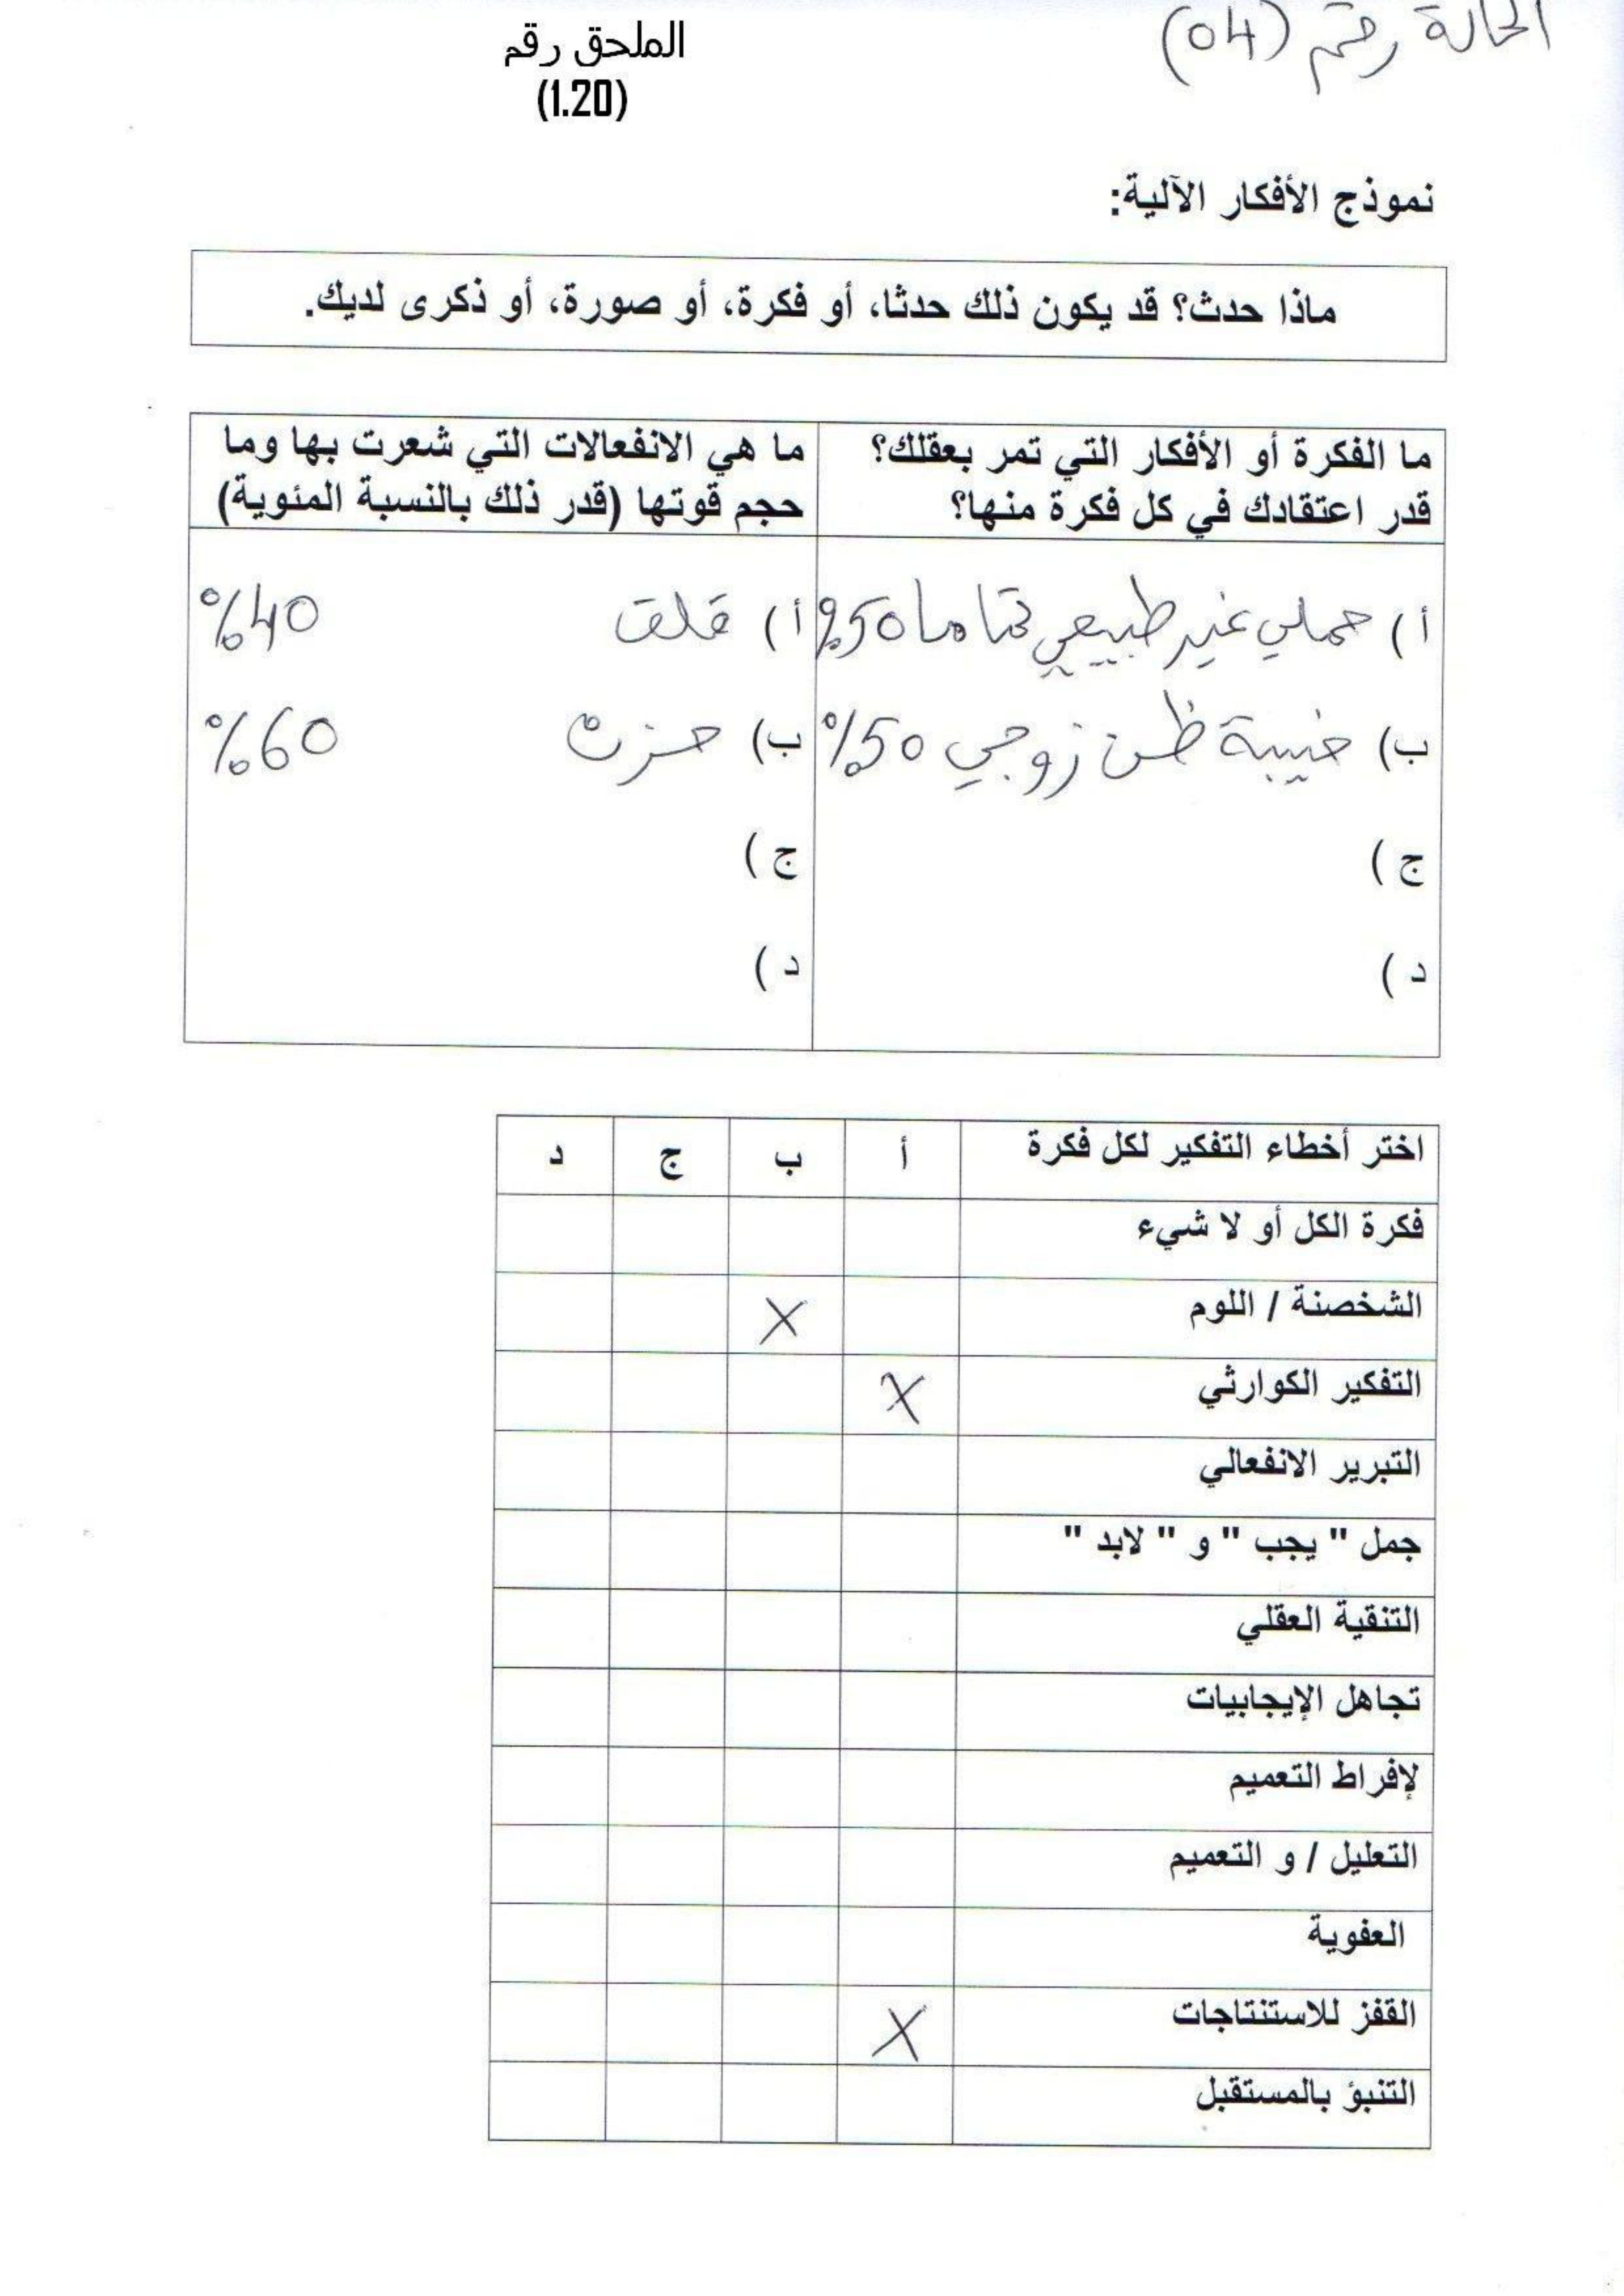 الحالة رقم (04)
الملحق رقم
(1.20)
نموذج الأفكار الآلية:
ماذا حدث؟ قد يكون ذلك حدثا، أو فكرة، أو صورة، أو ذكرى لديك.
ما الفكرة أو الأفكار التي تمر بعقلك؟
قدر اعتقادك في كل فكرة منها؟
ما هي الانفعالات التي شعرت بها وما
حجم قوتها (قدر ذلك بالنسبة المئوية)
أ) حملي غير طبيعي تماما 50%
أ) قلق 40%
ب) خيبة ظن زوجي 50%
ب) حزن 60%
ج)
ج)
د)
د)
اختر أخطاء التفكير لكل فكرة أ ب ج د
فكرة الكل أو لا شيء
الشخصنة / اللوم X
التفكير الكوارثي X
التبرير الانفعالي
جمل " يجب " و " لابد "
التنقية العقلي
تجاهل الإيجابيات
لإفراط التعميم
التعليل / و التعميم
العفوية
القفز للاستنتاجات X
التنبؤ بالمستقبل